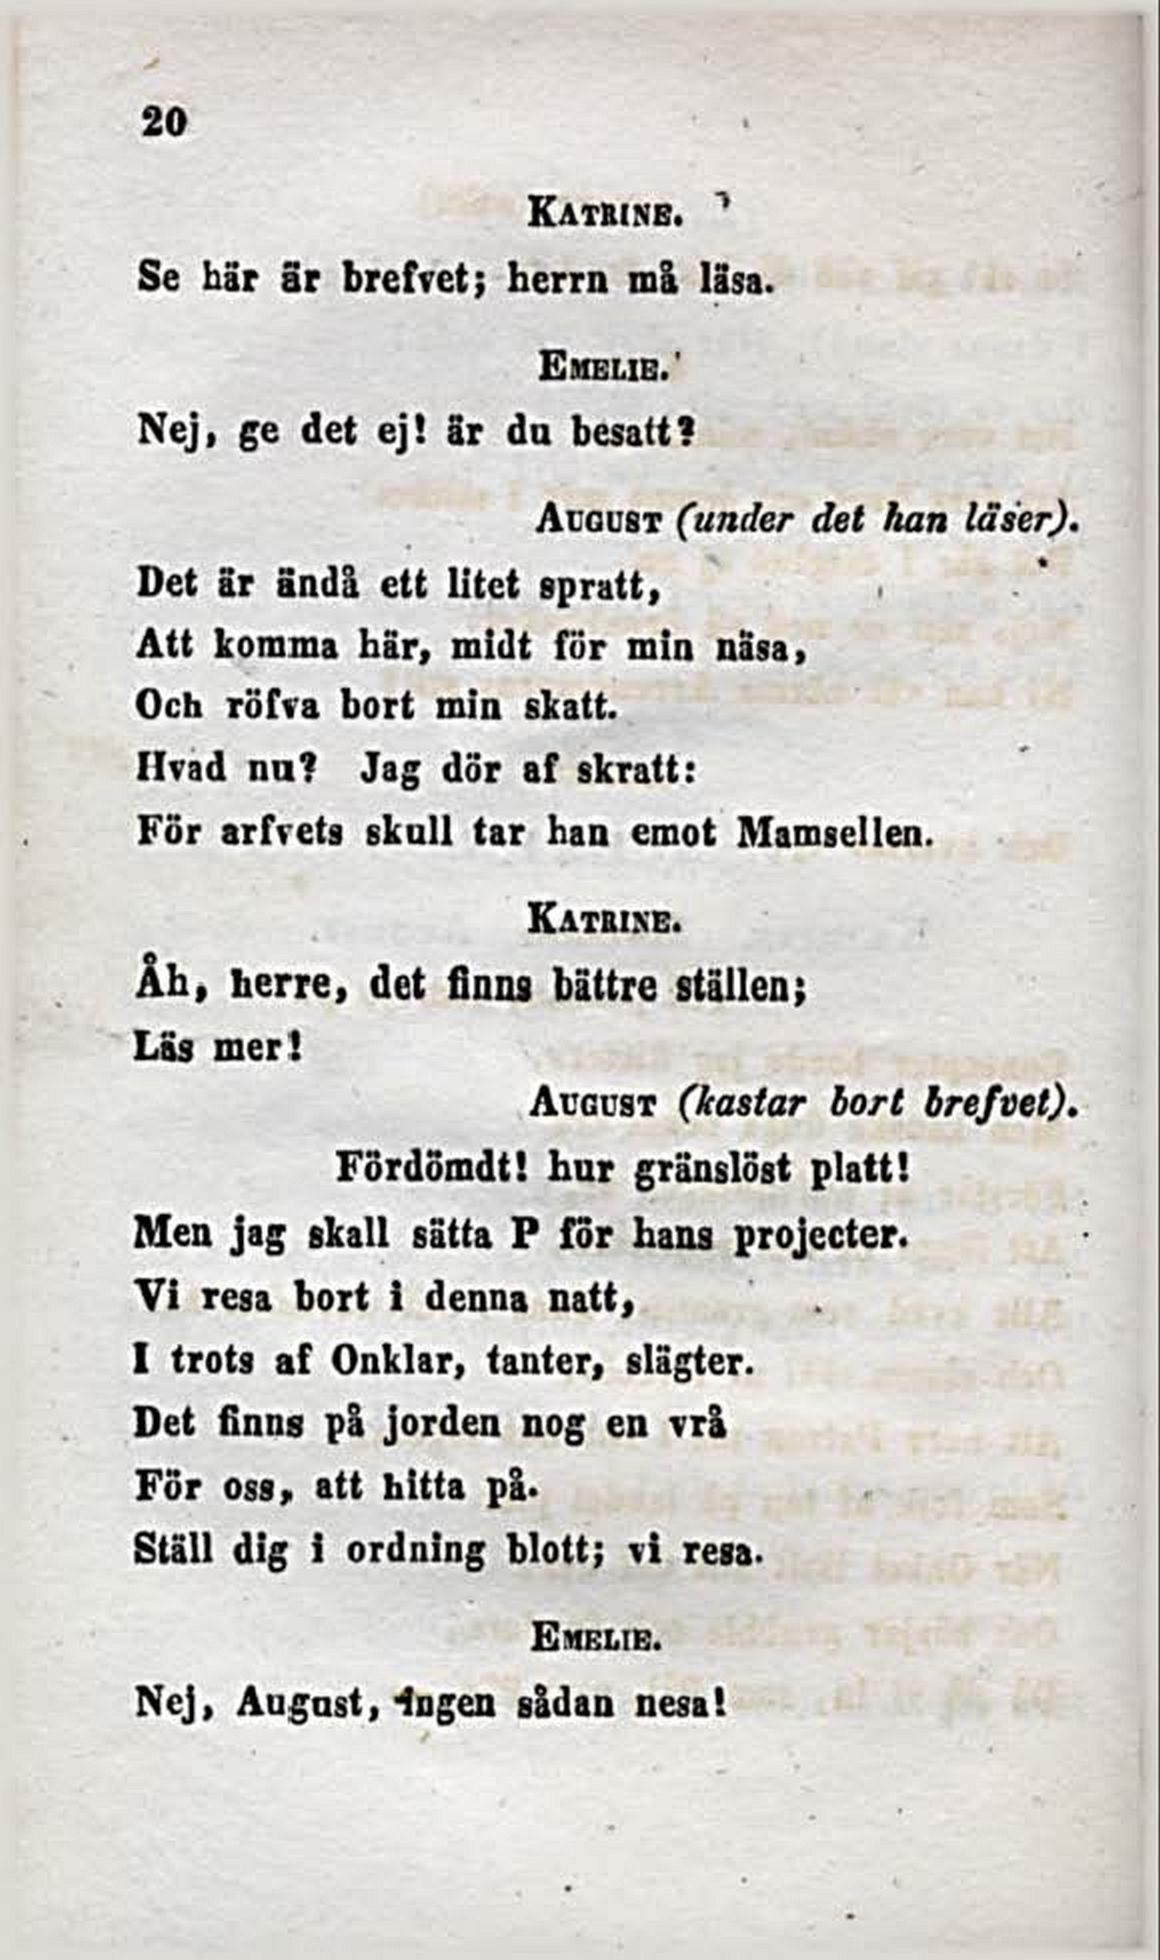 20
KATRINE.
Se här är brefvet; herrn må läsa.
EMELIE.
Nej, ge det ej! är du besatt?
AUGUST (under det han läser).
Det är ändå ett litet spratt,
Att komma här, midt för min näsa,
Och röfva bort min skatt.
Hvad nu? Jag dör af skratt:
För arfvets skull tar han emot Mamsellen.
KATRINE.
Åh, herre, det finns bättre ställen;
Läs mer!
AUGUST (kastar bort brefvet).
Fördömdt! hur gränslöst platt!
Men jag skall sätta P för hans projecter.
Vi resa bort i denna natt,
I trots af Onklar, tanter, slägter.
Det finns på jorden nog en vrå
För oss, att hitta på.
Ställ dig i ordning blott; vi resa.
EMELIE.
Nej, August, ingen sådan nesa!